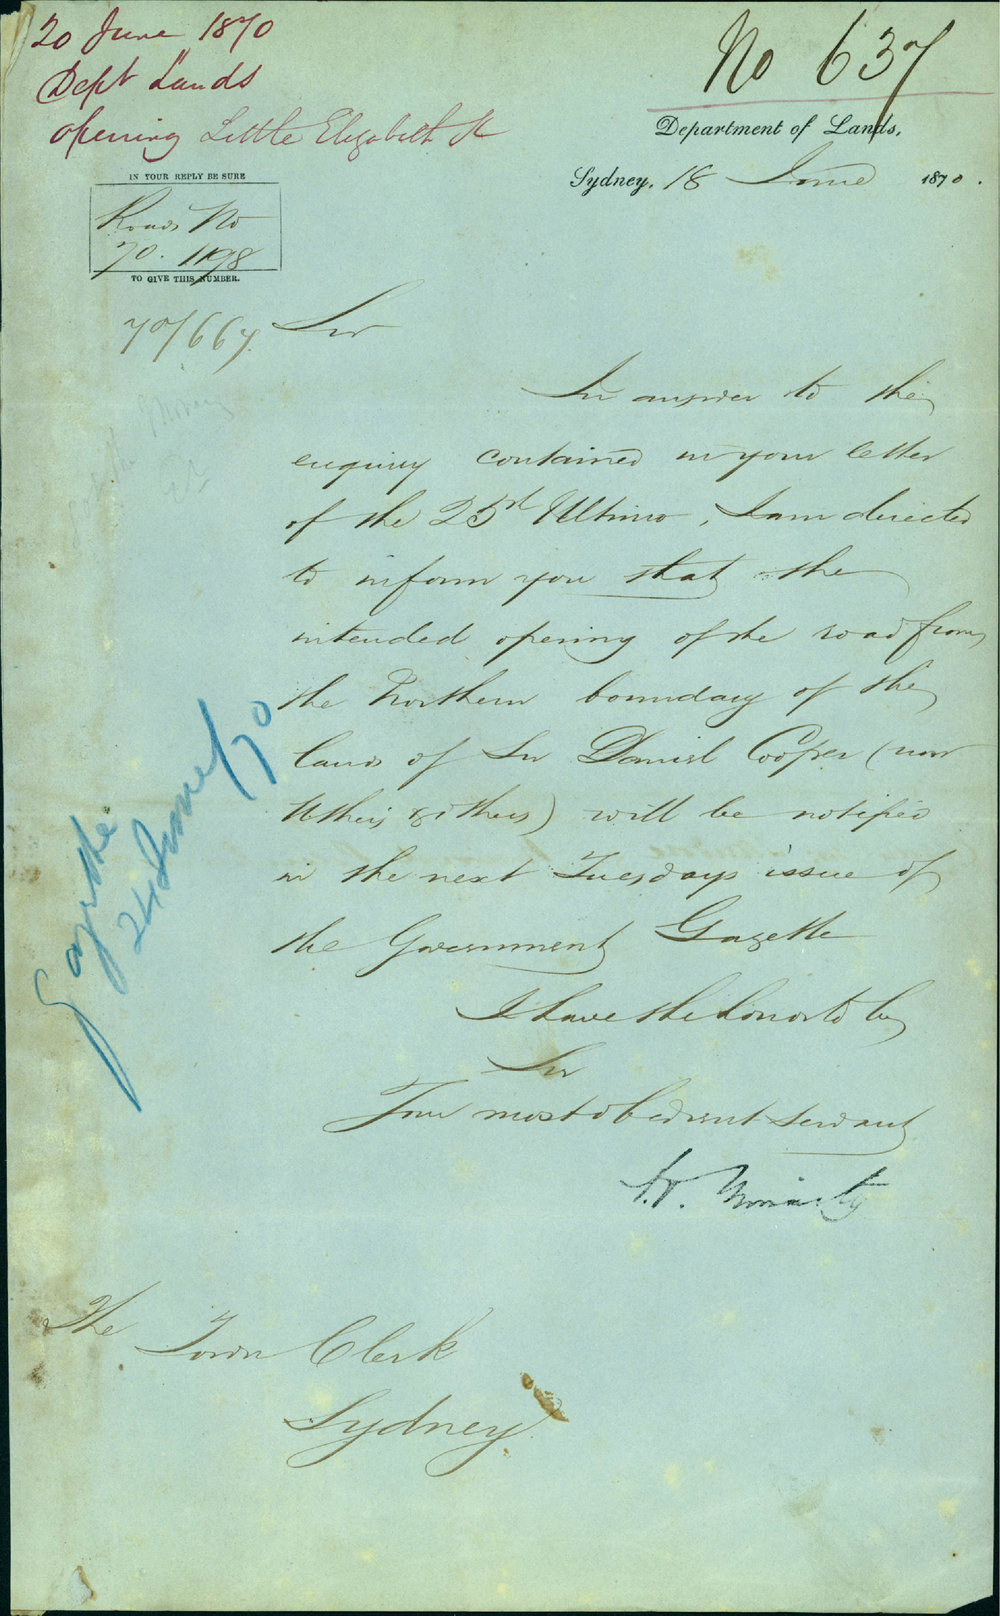 20 June 1870
Dept Lands
opening Little Elizabeth St
No 637
Department of Lands,
Sydney, 18 June 1870.
IN YOUR REPLY BE SURE
Roads No
70.1198
TO GIVE THIS NUMBER.
70/667
Sir
In answer to the
enquiry contained in your letter
of the 25th Ultimo, I am directed
to inform you that the
intended opening of the road from
the Northern boundary of the
land of Sir Daniel Cooper (now
& others) will be notified
in the next Tuesdays issue of
the Government Gazette
I have the honor to be
Sir
Your most obedient servant
Moriarty
Gazette
24 June/70
The Town Clerk
Sydney